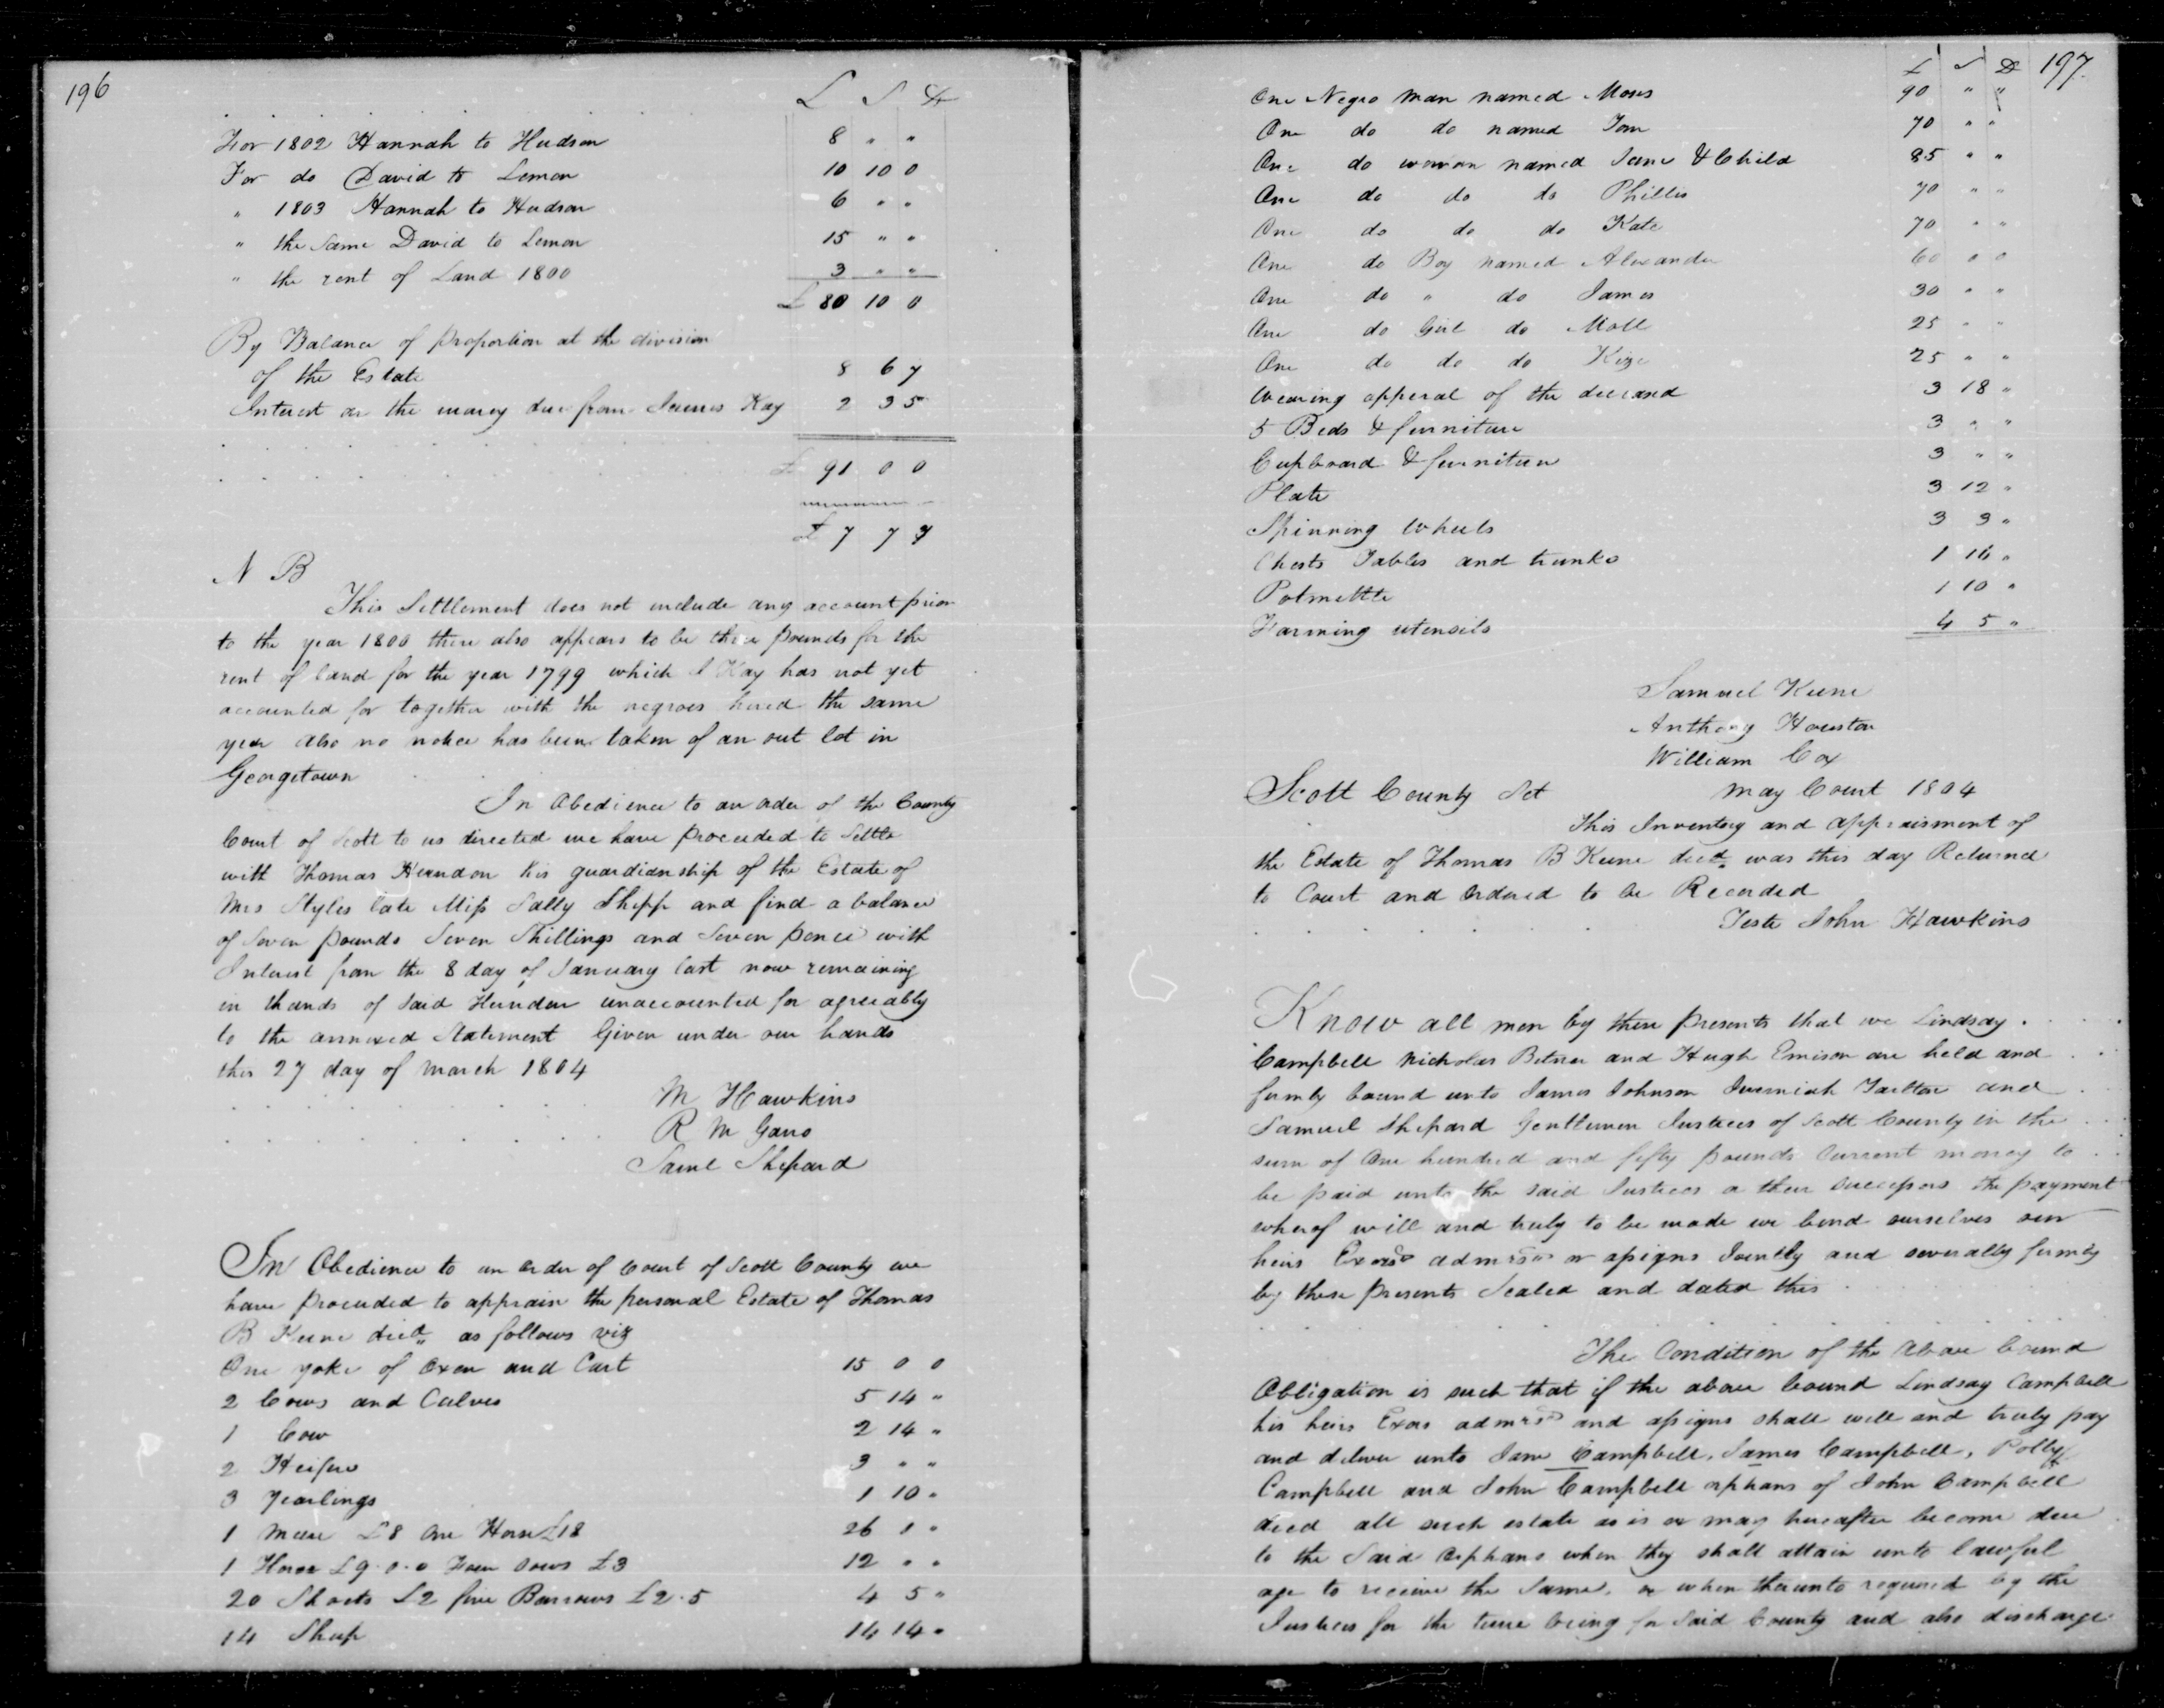 196
£ S D
For 1802 Hannah to Hudson 8 " "
For do David to Lemon 10 10 0
" 1803 Hannah to Hudson 6 " "
" the Same David to Lemon 15 " "
" the rent of Land 1800 3 " "
£ 80 10 0
By Balance of proportion at the division
of the Estate 8 6 7
Interest on the money due from James Kay 2 3 5
£ 91 0 0
£ 7 7 7
N B
This Settlement does not include any account prior
to the year 1800 there also appears to be three pounds for the
rent of land for the year 1799 which J Kay has not yet
accounted for together with the negroes hired the same
year also no notice has been taken of an out lot in
Georgetown
In Obedience to an order of the County
Court of Scott to us directed we have proceeded to Settle
with Thomas Herndon his guardianship of the Estate of
Mrs Styles late Miss Sally Shipp and find a balance
of Seven pounds Seven Shillings and Seven pence with
Interest from the 8 day of January last now remaining
in thands of said Herndon unaccounted for agreeably
to the annexed Statement Given under our hands
this 27 day of March 1804
M Hawkins
R M Gano
Saml Shepard
In Obedience to an order of Court of Scott County we
have proceeded to apprais the personal Estate of Thomas
B Keene decd as follows viz
One yoke of Oxen and Cart 15 0 0
2 Cows and Calves 5 14 "
1 Cow 2 14 "
2 Heifers 3 " "
3 Yearlings 1 10 "
1 Mare £8 One Horse £18 26 0 "
1 Horse £9.0.0 Four Sows £3 12 " "
20 Shoats £2 five Barrows £2.5 4 5 "
14 Sheep 14 14 "
£ S D 197
One Negro Man named Moses 90 " "
One do do named Tom 70 " "
One do woman named Jane & Child 85 " "
One do do do Phillis 70 " "
One do do do Kate 70 " "
One do Boy named Alexander 60 0 0
One do " do James 30 " "
One do Girl do Moll 25 " "
One do do do Kize 25 " "
Wearing apperal of the deceasd 3 18 "
5 Beds & furniture 3 " "
Cupboard & furniture 3 " "
Plate 3 12 "
Spinning Wheels 3 3 "
Chests Tables and trunks 1 16 "
Potmettle 1 10 "
Farming utensils 4 5 "
Samuel Keene
Anthony Houston
William Cox
Scott County Sct May Court 1804
This Inventory and appraisment of
the Estate of Thomas B Keene decd was this day Returned
to Court and Ordered to be Recorded
Teste John Hawkins
Know all men by these presents that we Lindsay
Campbell Nicholas Bitner and Hugh Emison are held and
firmly bound unto James Johnson Jeremiah Tarlton and
Samuel Shepard Gentlemen Justices of Scott County in the
sum of One hundred and fifty pounds Current money to
be paid unto the said Justices or their successors the payment
whereof will and truly to be made we bind ourselves our
heirs Exors admrs or assigns Jointly and severally firmly
by these presents Sealed and dated this
The Condition of the above bound
Obligation is such that if the above bound Lindsay Campbell
his heirs Exors admrs and assigns shall well and truly pay
and deliver unto Jane Campbell, James Campbell, Polly
Campbell and John Campbell orphans of John Campbell
decd all such estate as is or may hereafter become due
to the Said Orphans when they shall attain unto lawful
age to receive the Same, or when thereunto required by the
Justices for the time being for Said County and also discharge